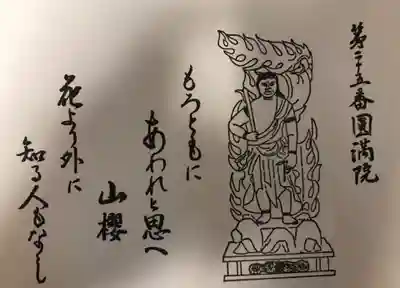 第二十五番圓満院
もろともに
あわれと思へ
山櫻
花より外に
知る人もなし